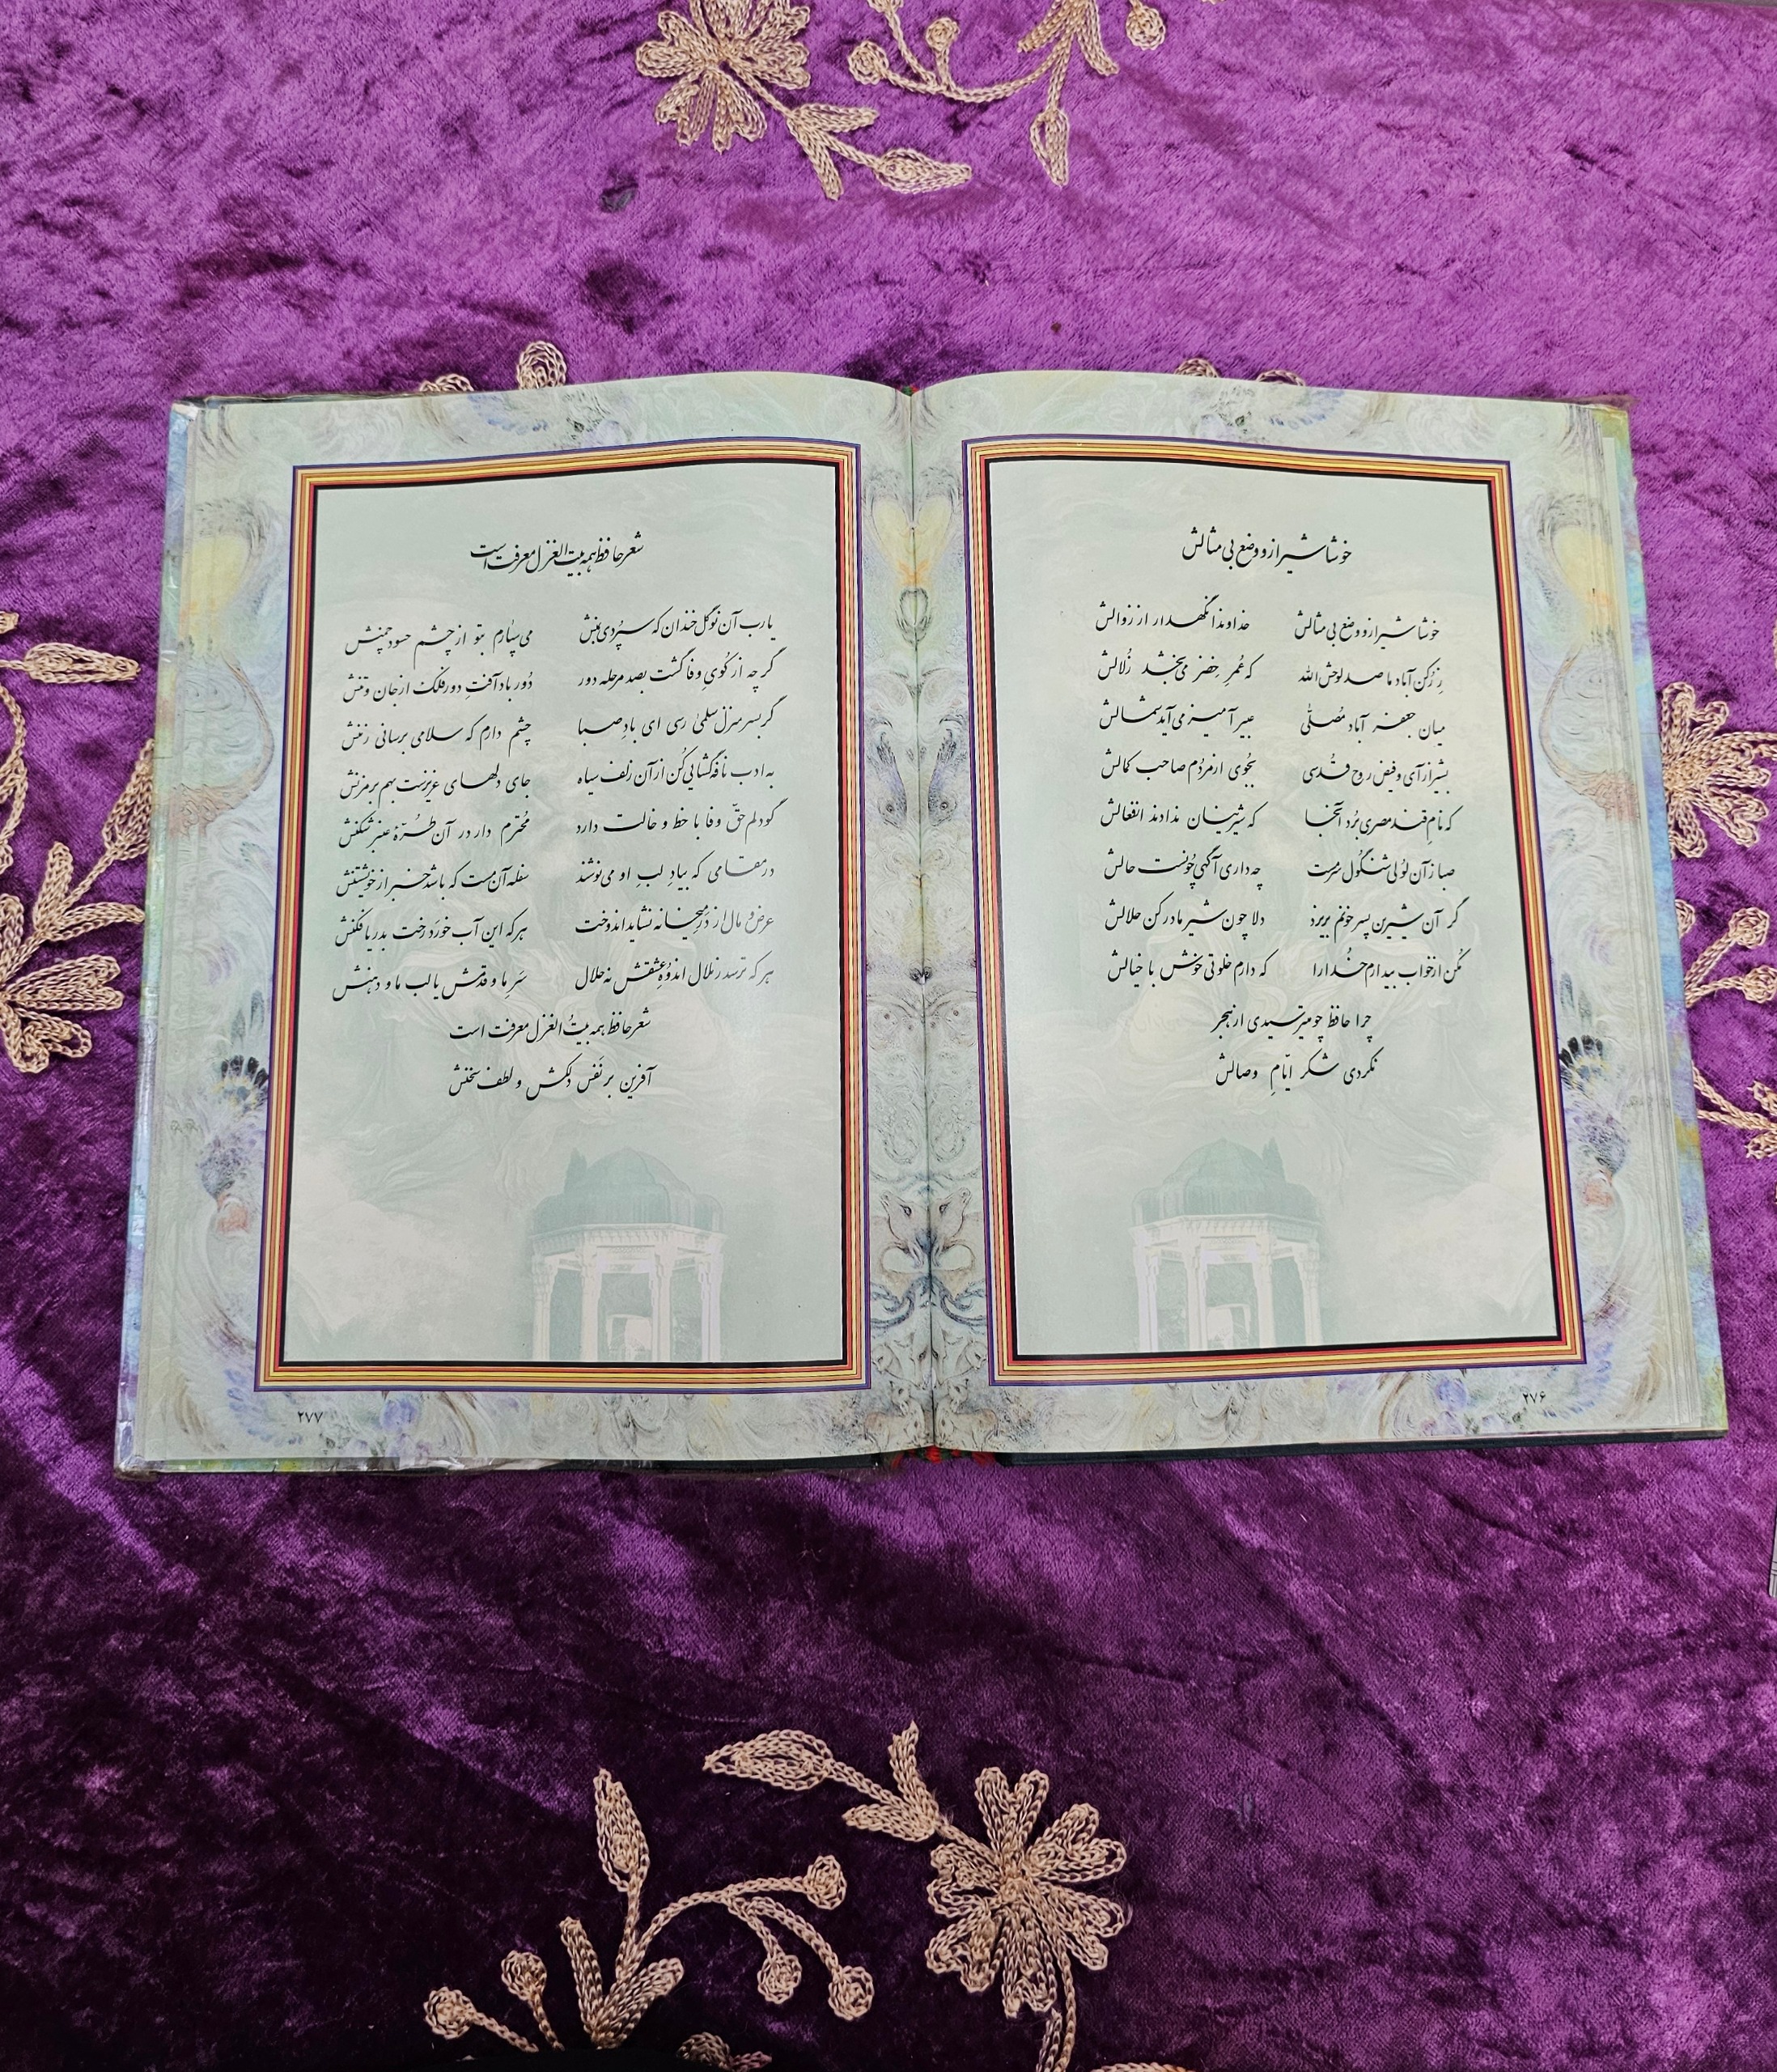 خوشا شیراز و وضع بی مثالش
خوشا شیراز و وضع بی مثالش خداوندا نگهدار از زوالش
ز رُکن آباد ما صد لوحش الله که عُمرِ خضر می‌بخشد زُلالش
میان جعفر آباد و مُصلّی عبیر آمیز می‌آید شمالش
بشیراز آی و فیض روح قُدسی بجوی از مردُم صاحب کمالش
که نامِ قند مصری بُرد آنجا که شیرینان ندادند انفعالش
صبا زان لولی شنگول سرمست چه داری آگهی چونست حالش
گر آن شیرین پسر خونم بریزد دلا چون شیر مادر کن حلالش
مکُن از خواب بیدارم خُدا را که دارم خلوتی خوش با خیالش
چرا حافظ چو میترسیدی از هجر
نکردی شکر ایّامِ وصالش
۲۷۶
شعر حافظ همه بیت الغزل معرفت است
یارب آن نوگل خندان که سپُردی بمنش می‌سپارم بتو از چشم حسود چمنش
گر چه از کوی وفا گشت بصد مرحله دور دُور باد آفتِ دور فلک از جان و تنش
گر بسر منزل سلمیٰ رسی ای بادِ صبا چشم دارم که سلامی برسانی ز منش
به ادب نافه گشایی کُن از آن زلف سیاه جای دلهای عزیزست بهم بر مزنش
گو دلم حقّ وفا با خط و خالت دارد مُحترم دار در آن طُرّهٔ عنبر شکنش
در مقامی که بیادِ لبِ او می‌نوشند سفله آن مست که باشد خبر از خویشتنش
عرض و مال از دَرِ میخانه نشاید اندوخت هر که این آب خورَد رخت بدریا فکنش
هر که ترسد ز ملال اندُوه عشقش نه حلال سَرِ ما و قدمش یا لب ما و دهنش
شعر حافظ همه بیتُ الغزل معرفت است
آفرین بر نَفَس دلکش و لطف سخنش
۲۷۷